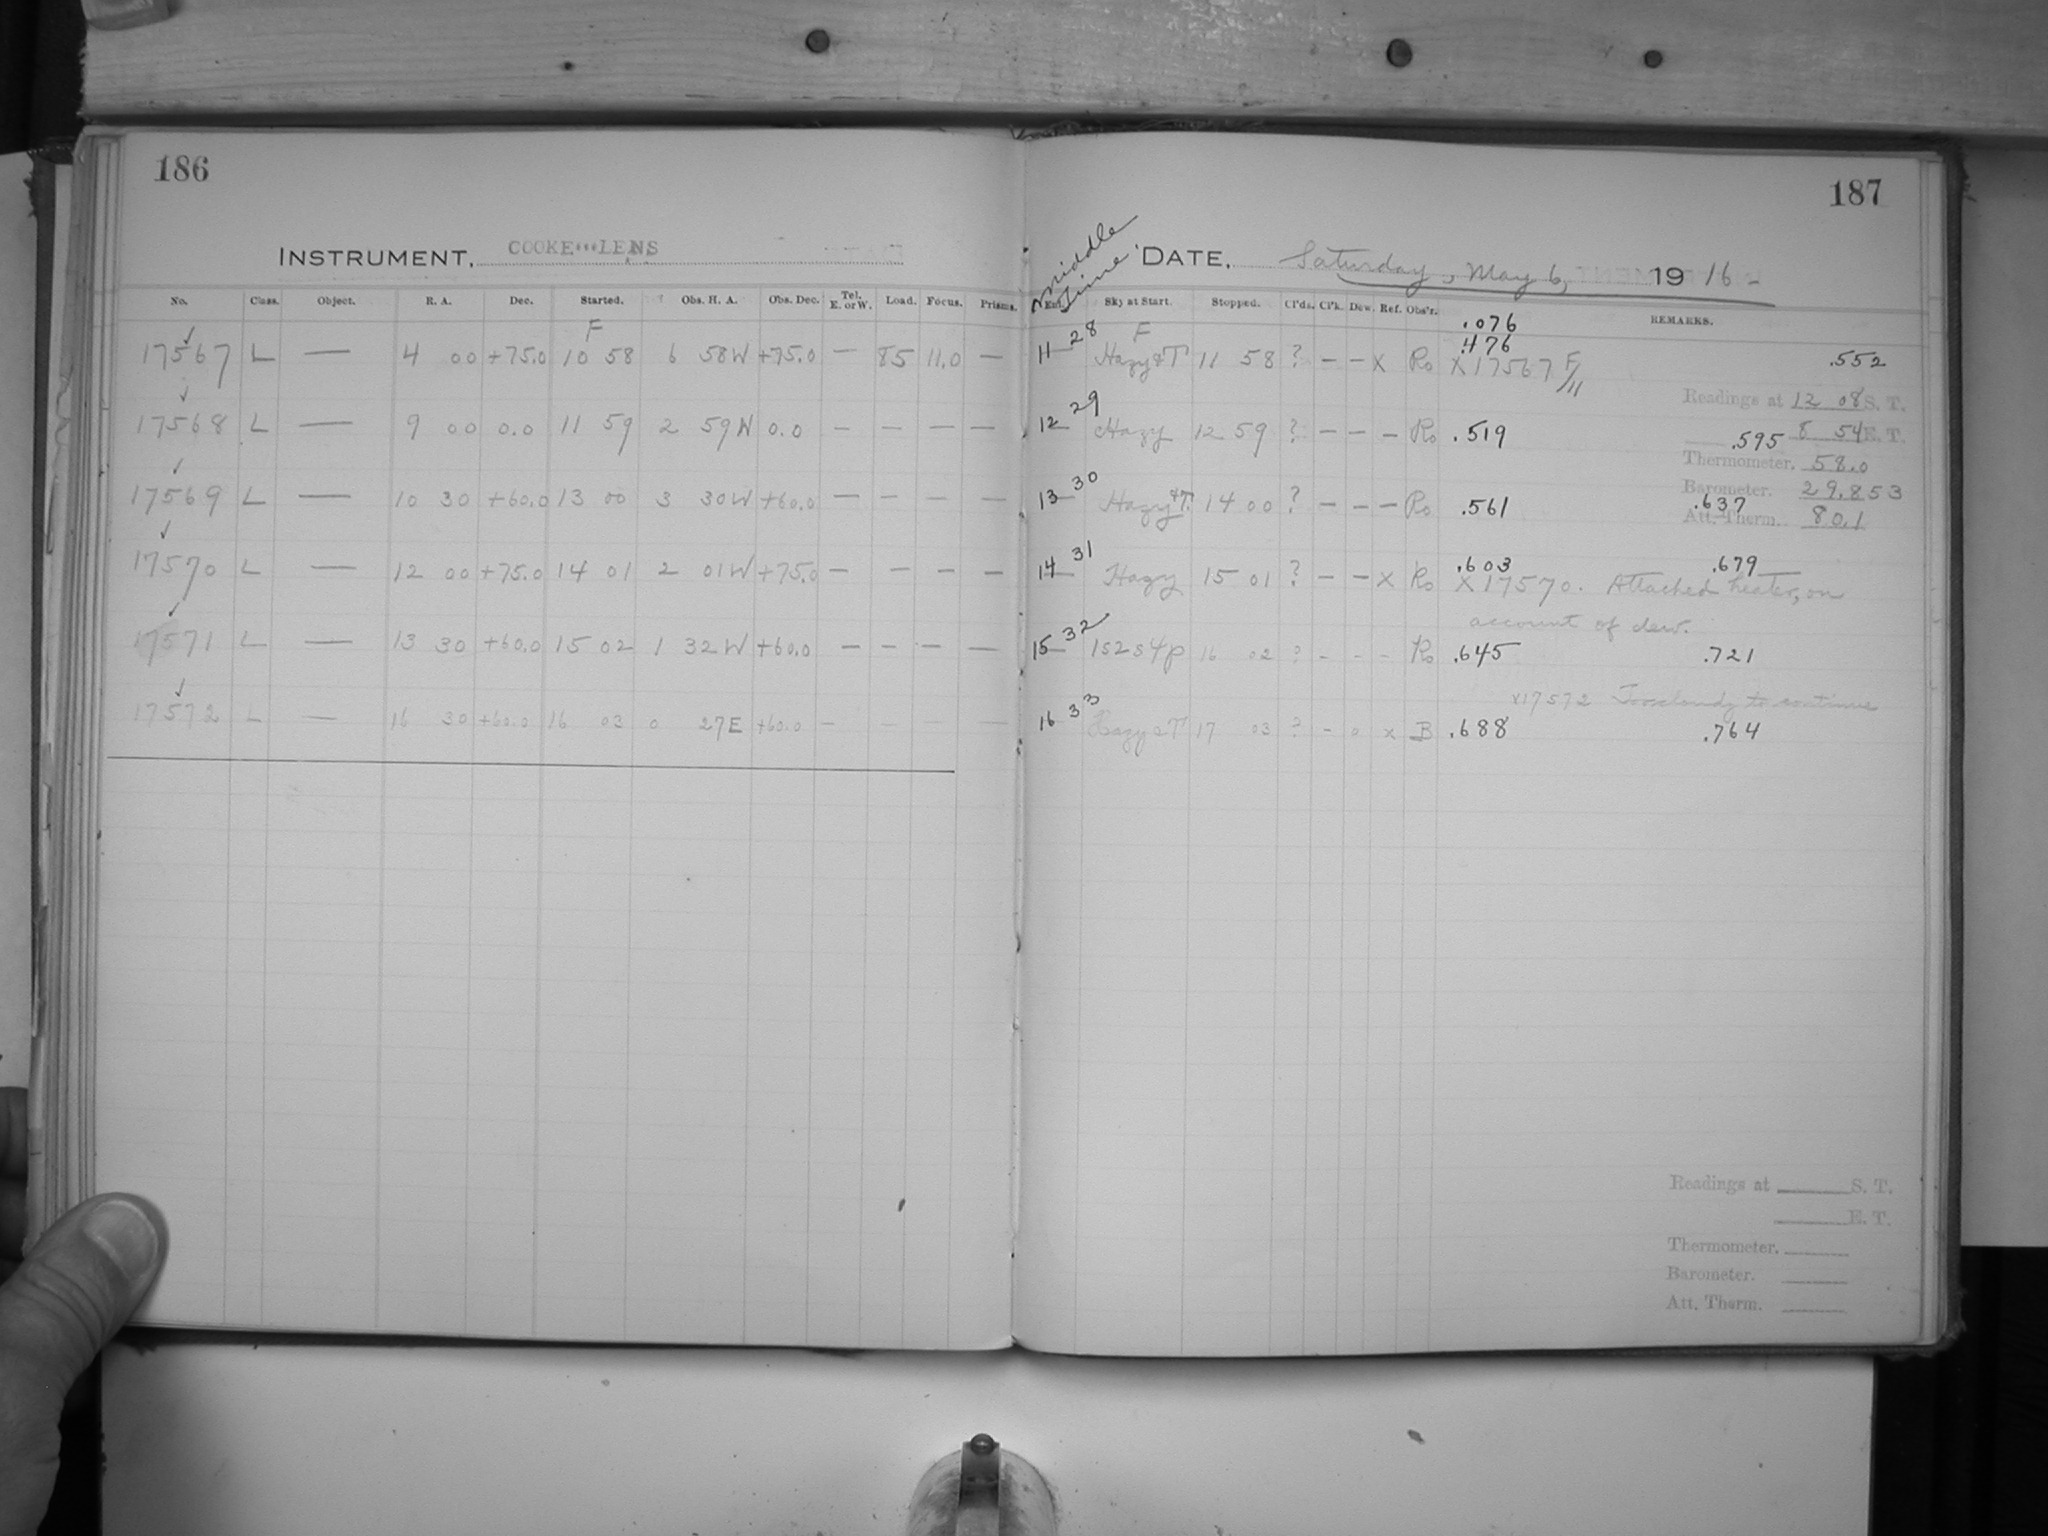 186
INSTRUMENT, COOKE LENS
No. Class. Object. R. A. Dec. Started. Obs. H. A. Obs. Dec. Tel. E. or W. Load. Focus. Prisms.
F
17567 L — 4 00 +75.0 10 58 6 58W +75.0 — 85 11.0 —
17568 L — 9 00 0.0 11 59 2 59W 0.0 — — — —
17569 L — 10 30 +60.0 13 00 3 30W +60.0 — — — —
17570 L — 12 00 +75.0 14 01 2 01W +75.0 — — — —
17571 L — 13 30 +60.0 15 02 1 32W +60.0 — — — —
17572 L — 16 30 +60.0 16 03 0 27E +60.0 — — — —
187
Middle Time
DATE, Saturday, May 6, 1916-
Sky at Start. Stopped. Cl'ds. Cl'k. Dew. Ref. Obs'r. REMARKS.
F .076
.476
11 28 Hazy&T 11 58 ? — — X Ro X17567 F/11 .552
Readings at 12 08 S. T.
12 29 Hazy 12 59 ? — — — Ro .519 .595 8 54 E. T.
Thermometer. 58.0
Barometer. 29.853
13 30 Hazy&T. 14 00 ? — — — Ro .561 .637
Att. Therm. 80.1
14 31 Hazy 15 01 ? — — X Ro .603 .679
X17570. Attached heater, on
account of dew.
15 32 1s2s4p 16 02 ? - - - Ro .645 .721
x17572 Too cloudy to continue
16 33 Hazy&T 17 03 ? - 0 x B .688 .764
Readings at S. T.
E. T.
Thermometer.
Barometer.
Att. Therm.